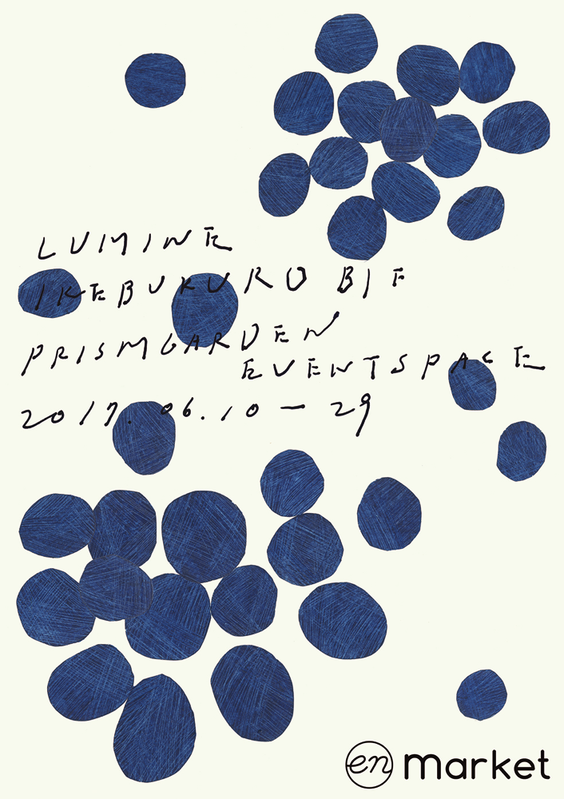 LUMINE
IKEBUKURO B1F
PRISMGARDEN
EVENTSPACE
2017.06.10 — 29
en market